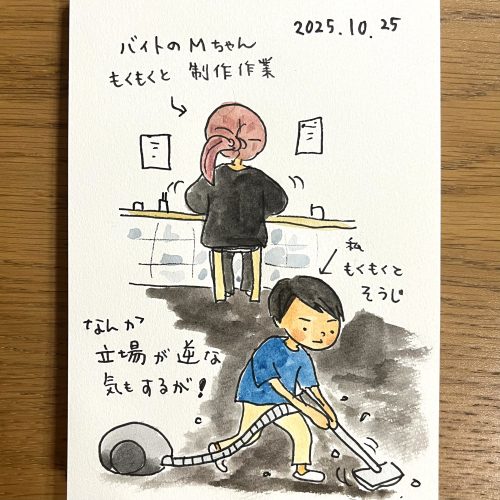 2025.10.25
バイトのMちゃん
もくもくと 制作作業
私
もくもくと
そうじ
なんか
立場が逆な
気もするが!